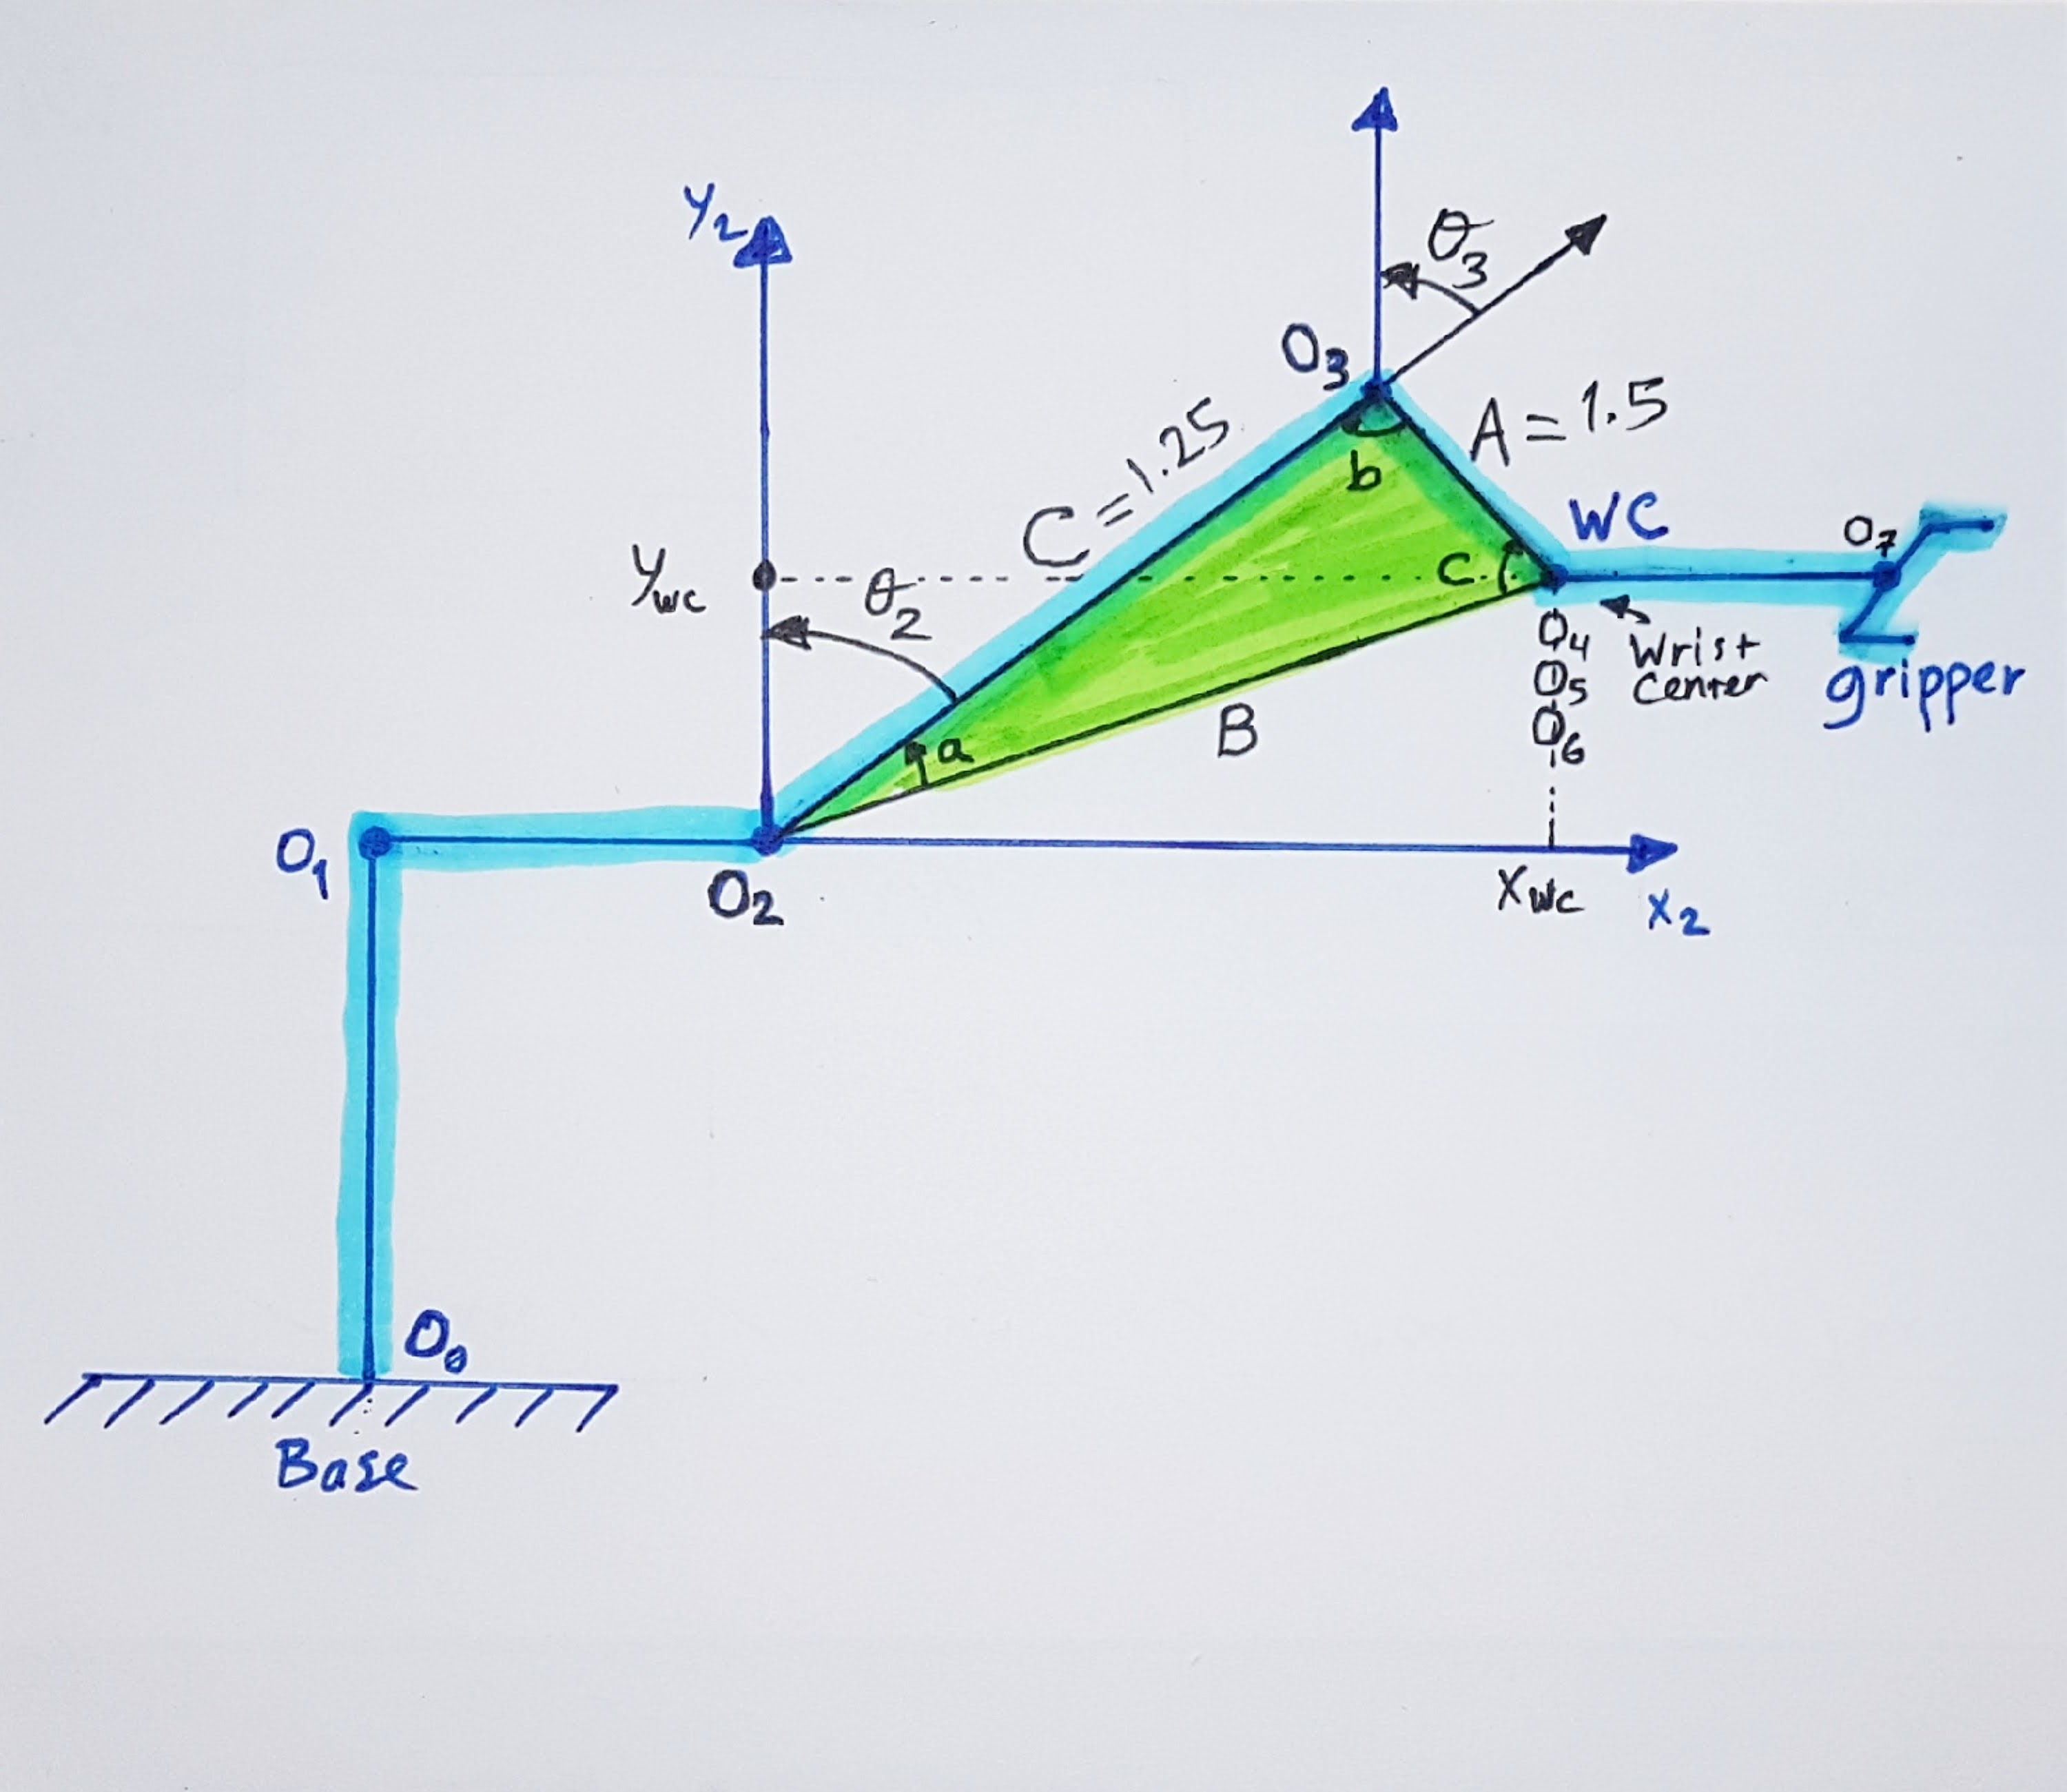 Y2
θ3
O3
A = 1.5
C = 1.25
b
WC
O7
Ywc
θ2
c
O4
O5
O6
Wrist
Center
gripper
a
B
O1
O2
Xwc
X2
O0
Base